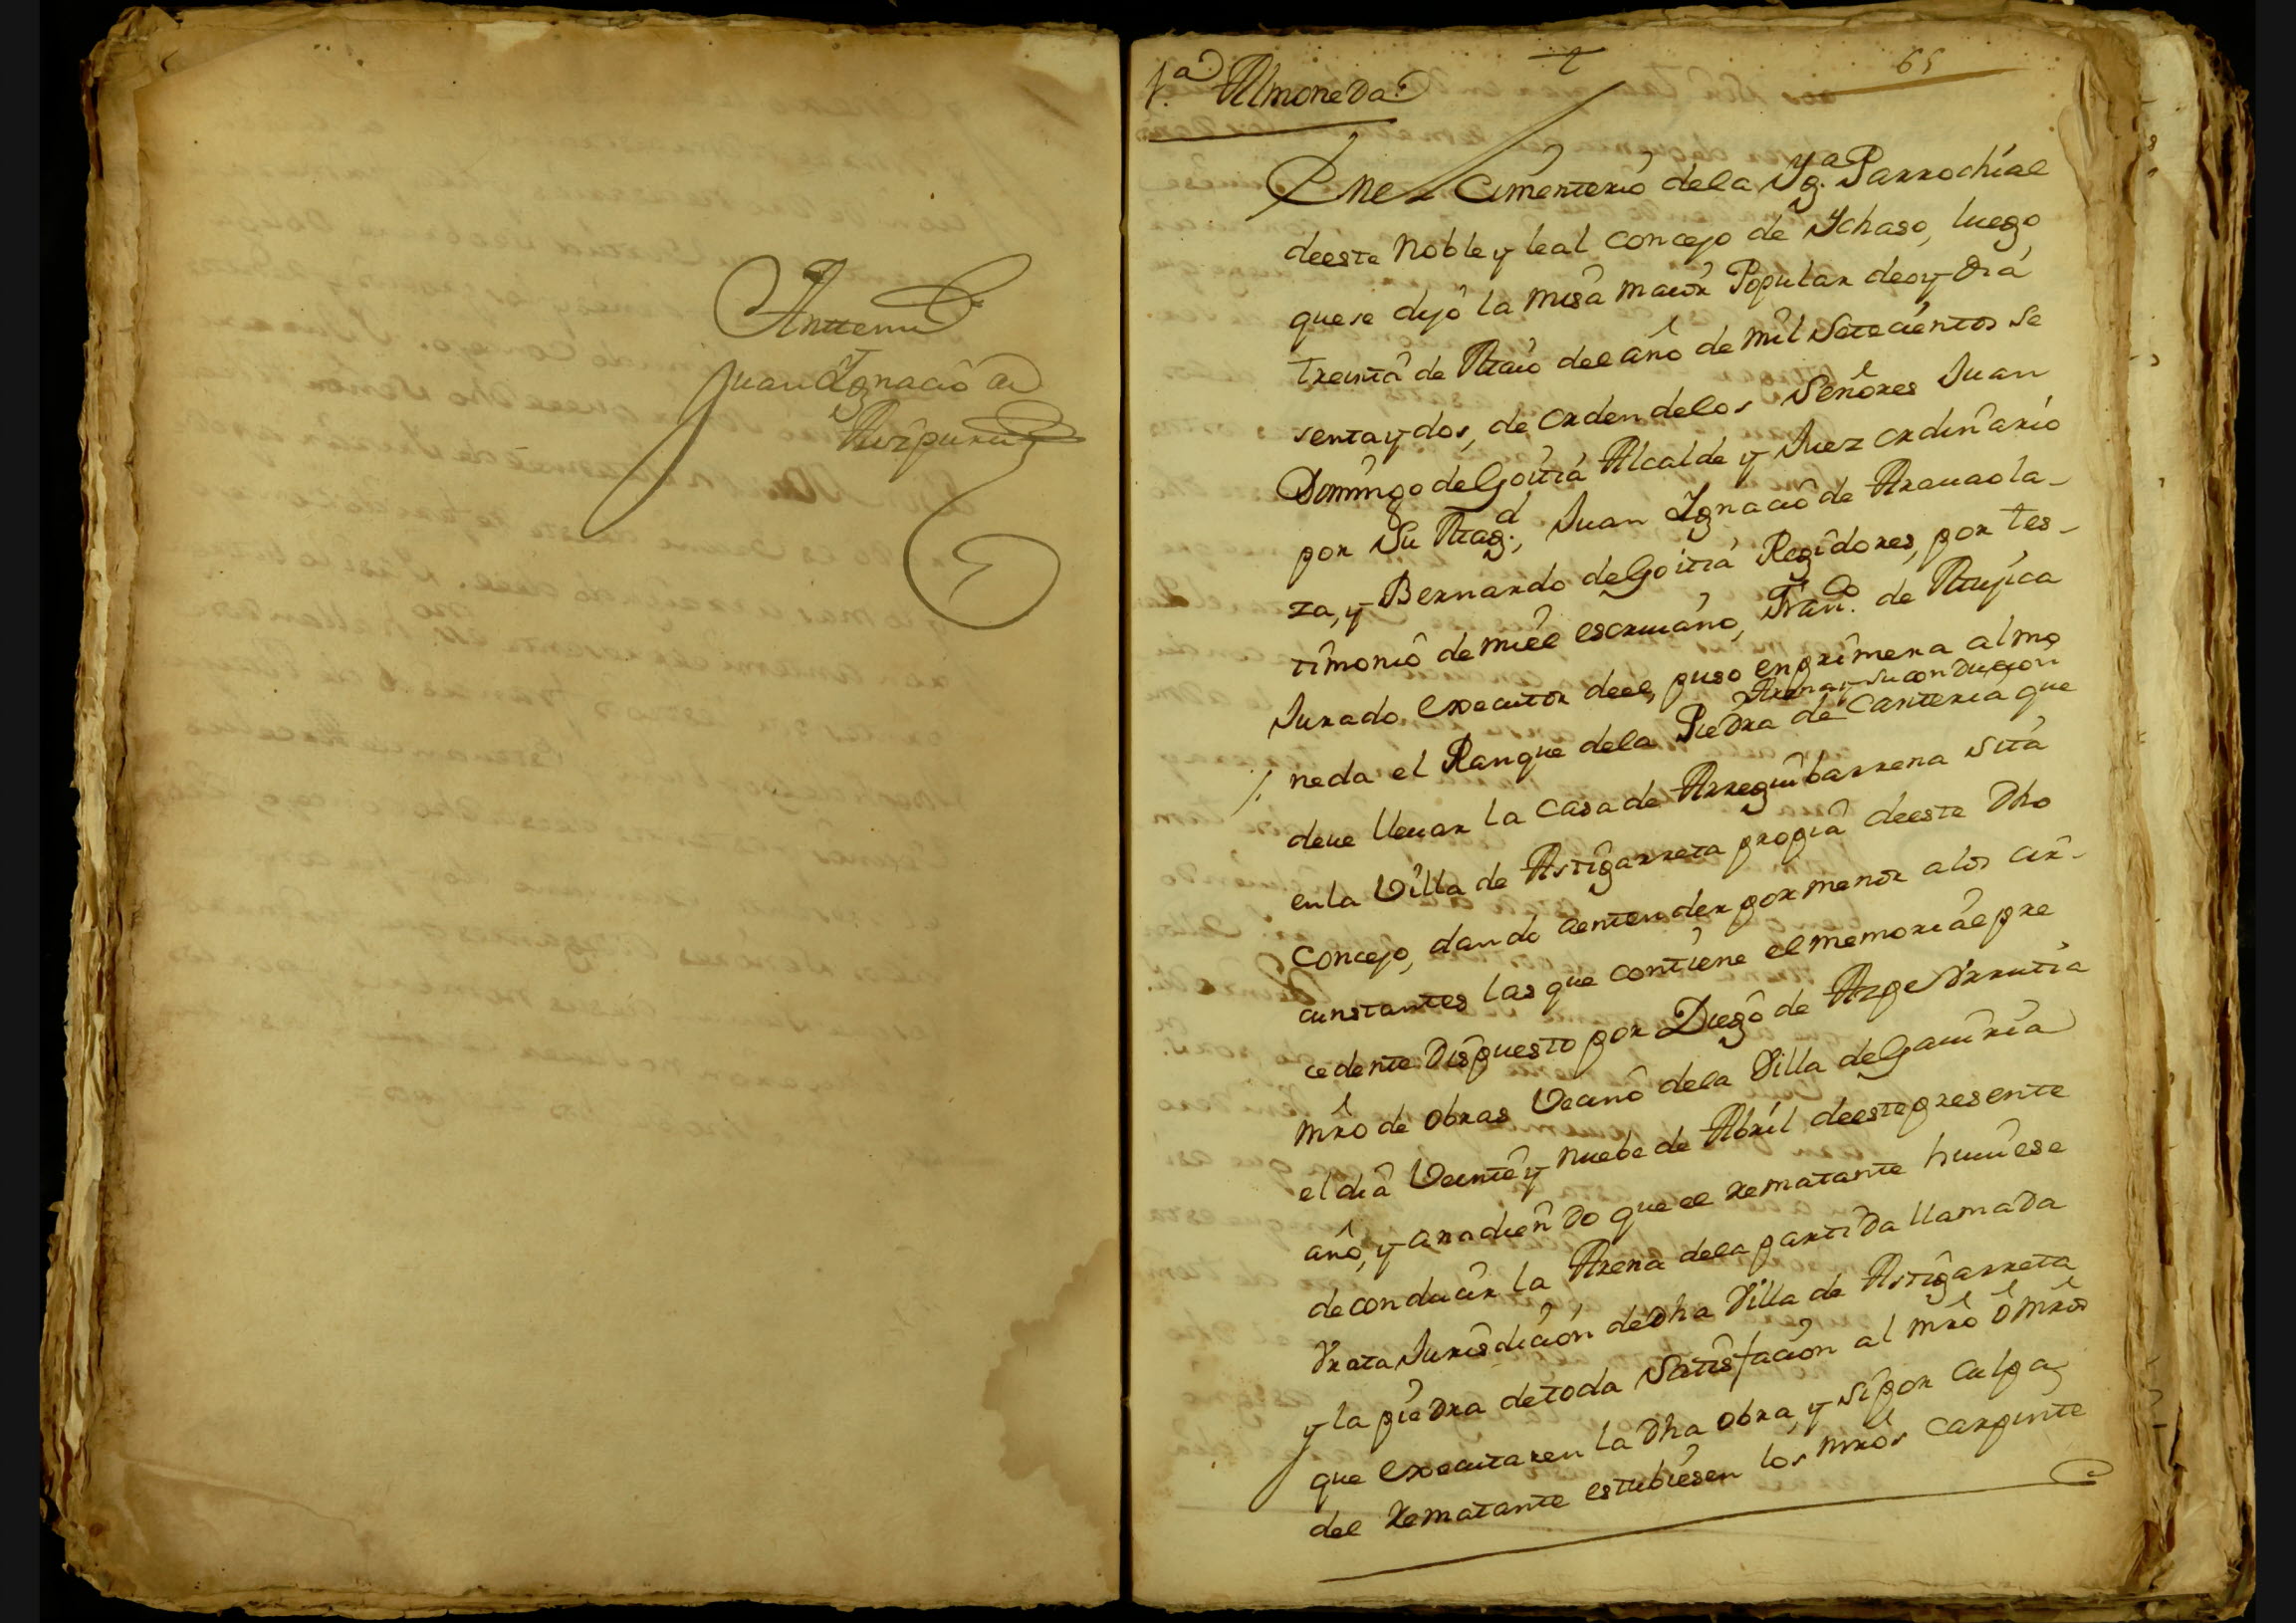 Anttemi
Juan Ignacio de
1.ª Almoneda.
65
En el Cimenterio de la Yg.ª Parrochial
de este Noble y leal Concejo de Ychaso, luego
que se dijo la misa maior Popular de oy dia
treinta de Maio del año de mil Setecientos se
senta y dos, de orden de los Señores Juan
Domingo de Goitia Alcalde y Juez ordinario
por Su Mag.d, Juan Ygnacio de Aranaola-
za, y Bernardo de Goitia Regidores, por tes-
timonio de mi el escriuano, Fran.co de Mujica
Jurado executor de el, puso en primera almo
Arena, y su conducion
neda el Ranque de la Piedra de Canteria que
deue lleuar la Casa de Arreguibarrena sita
en la Villa de Astigarreta propia de este Dho
Concejo, dando a entender por menor a los cir-
cunstantes las que contiene el memorial pre
cedente Dispuesto por Diego de Azpe Vrrutia
mro de obras Vecino de la Villa de Gauiria
el dia Veinte y nuebe de Abril de este presente
año, y anadiendo que el rematante huuiese
de conducir la Arena de la partida llamada
Vrata Jurisdicion de Dha Villa de Astigarreta
y la piedra de toda Satisfacion al mro ô mros
que executaren la Dha obra, y si por culpa
del rematante estubiesen los mros carpinte